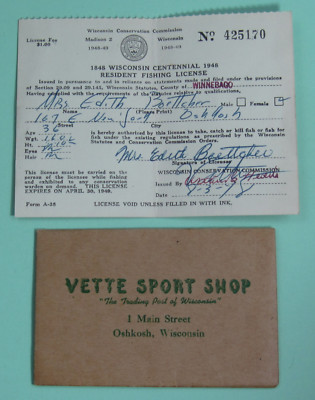 Wisconsin Conservation Commission
License Fee Madison 2 Wisconsin Nº 425170
$1.00 1948-49 1948-49
1848 WISCONSIN CENTENNIAL 1948
RESIDENT FISHING LICENSE
Issued pursuant to and in reliance on statements made and filed under the provisions
of Section 29.09 and 29.145, Wisconsin Statutes, County of WINNEBAGO
Having complied with the requirements of the Statutes relative to qualifications, Male Female
Mrs Edith Boettcher
(Please Print)
167 E New York Oshkosh
Street
Age 36
Wgt. 160
Ht.
Eyes
Hair
is hereby authorized by this license to take, catch or kill fish or fish for
under the existing regulations as prescribed by the Wisconsin
Statutes and Conservation Commission Orders.
Mrs. Edith Boettcher
Signature of Licensee
This license must be carried on the
person of the licensee while fishing and
exhibited to any conservation
warden on demand. THIS LICENSE
EXPIRES ON APRIL 30, 1949.
WISCONSIN CONSERVATION COMMISSION
Issued By
Form A-25 LICENSE VOID UNLESS FILLED IN WITH INK.
VETTE SPORT SHOP
"The Trading Post of Wisconsin"
1 Main Street
Oshkosh, Wisconsin